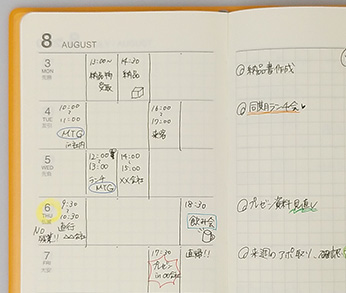 8 AUGUST
3 MON
13:00~ 14:30
納品物 納品
受取
② 納品書作成
4 TUE
10:00 16:00
11:00 17:00
MTG 来客
in社内
② 同期ランチ会
5 WED
12:00 14:00
13:00 15:00
ランチ XX会社
MTG
6 THU
9:30 18:30
10:30
直行 飲み会
NO 残業!! △△会社
② プレゼン資料見直し
7 FRI
17:30 直帰!!
プレゼン
in ○○会社
② 来週のアポ取り、確認